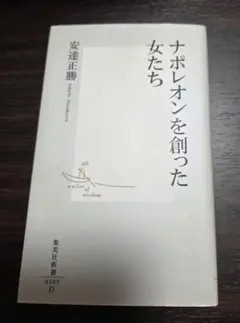 ナポレオンを創った
女たち
安達正勝
Adachi Masakatsu
a pilot of
wisdom
集英社新書